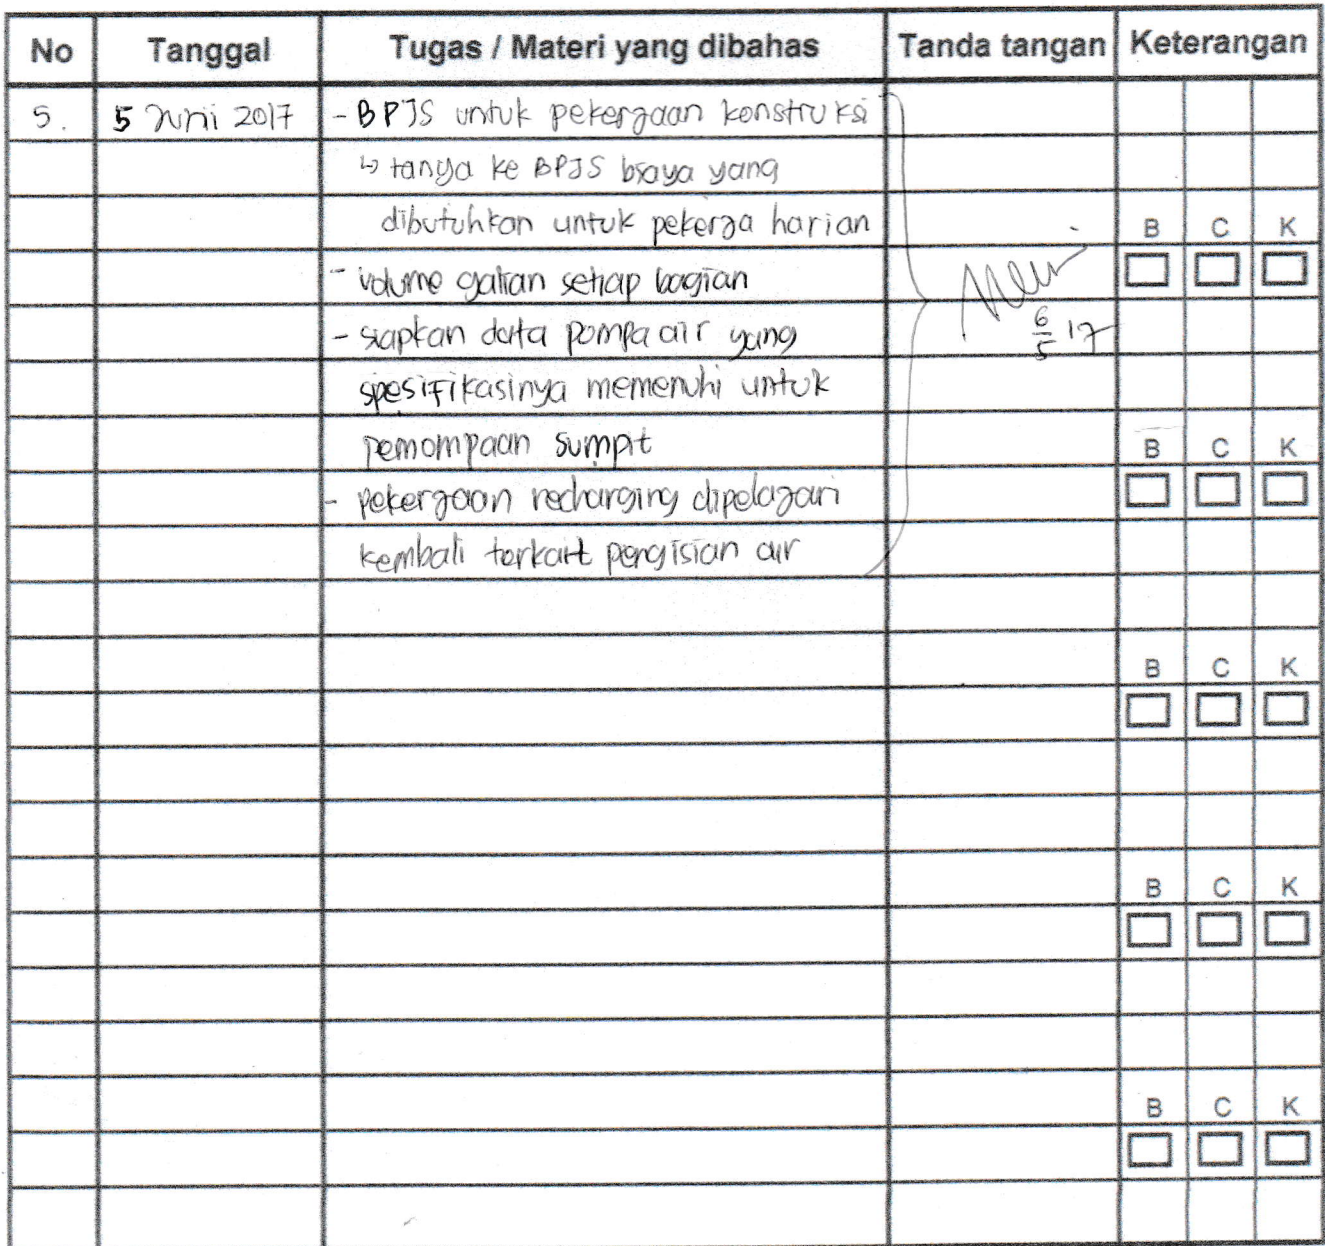 No Tanggal Tugas / Materi yang dibahas Tanda tangan Keterangan
5. 5 Juni 2017 - BPJS untuk pekerjaan konstruksi
↳ tanya ke BPJS biaya yang
dibutuhkan untuk pekerja harian
B C K
- volume galian setiap bagian
- siapkan data pompa air yang
6/5 17
spesifikasinya memenuhi untuk
pemompaan sumpit
B C K
- pekerjaan recharging dipelajari
kembali terkait pengisian air
B C K
B C K
B C K